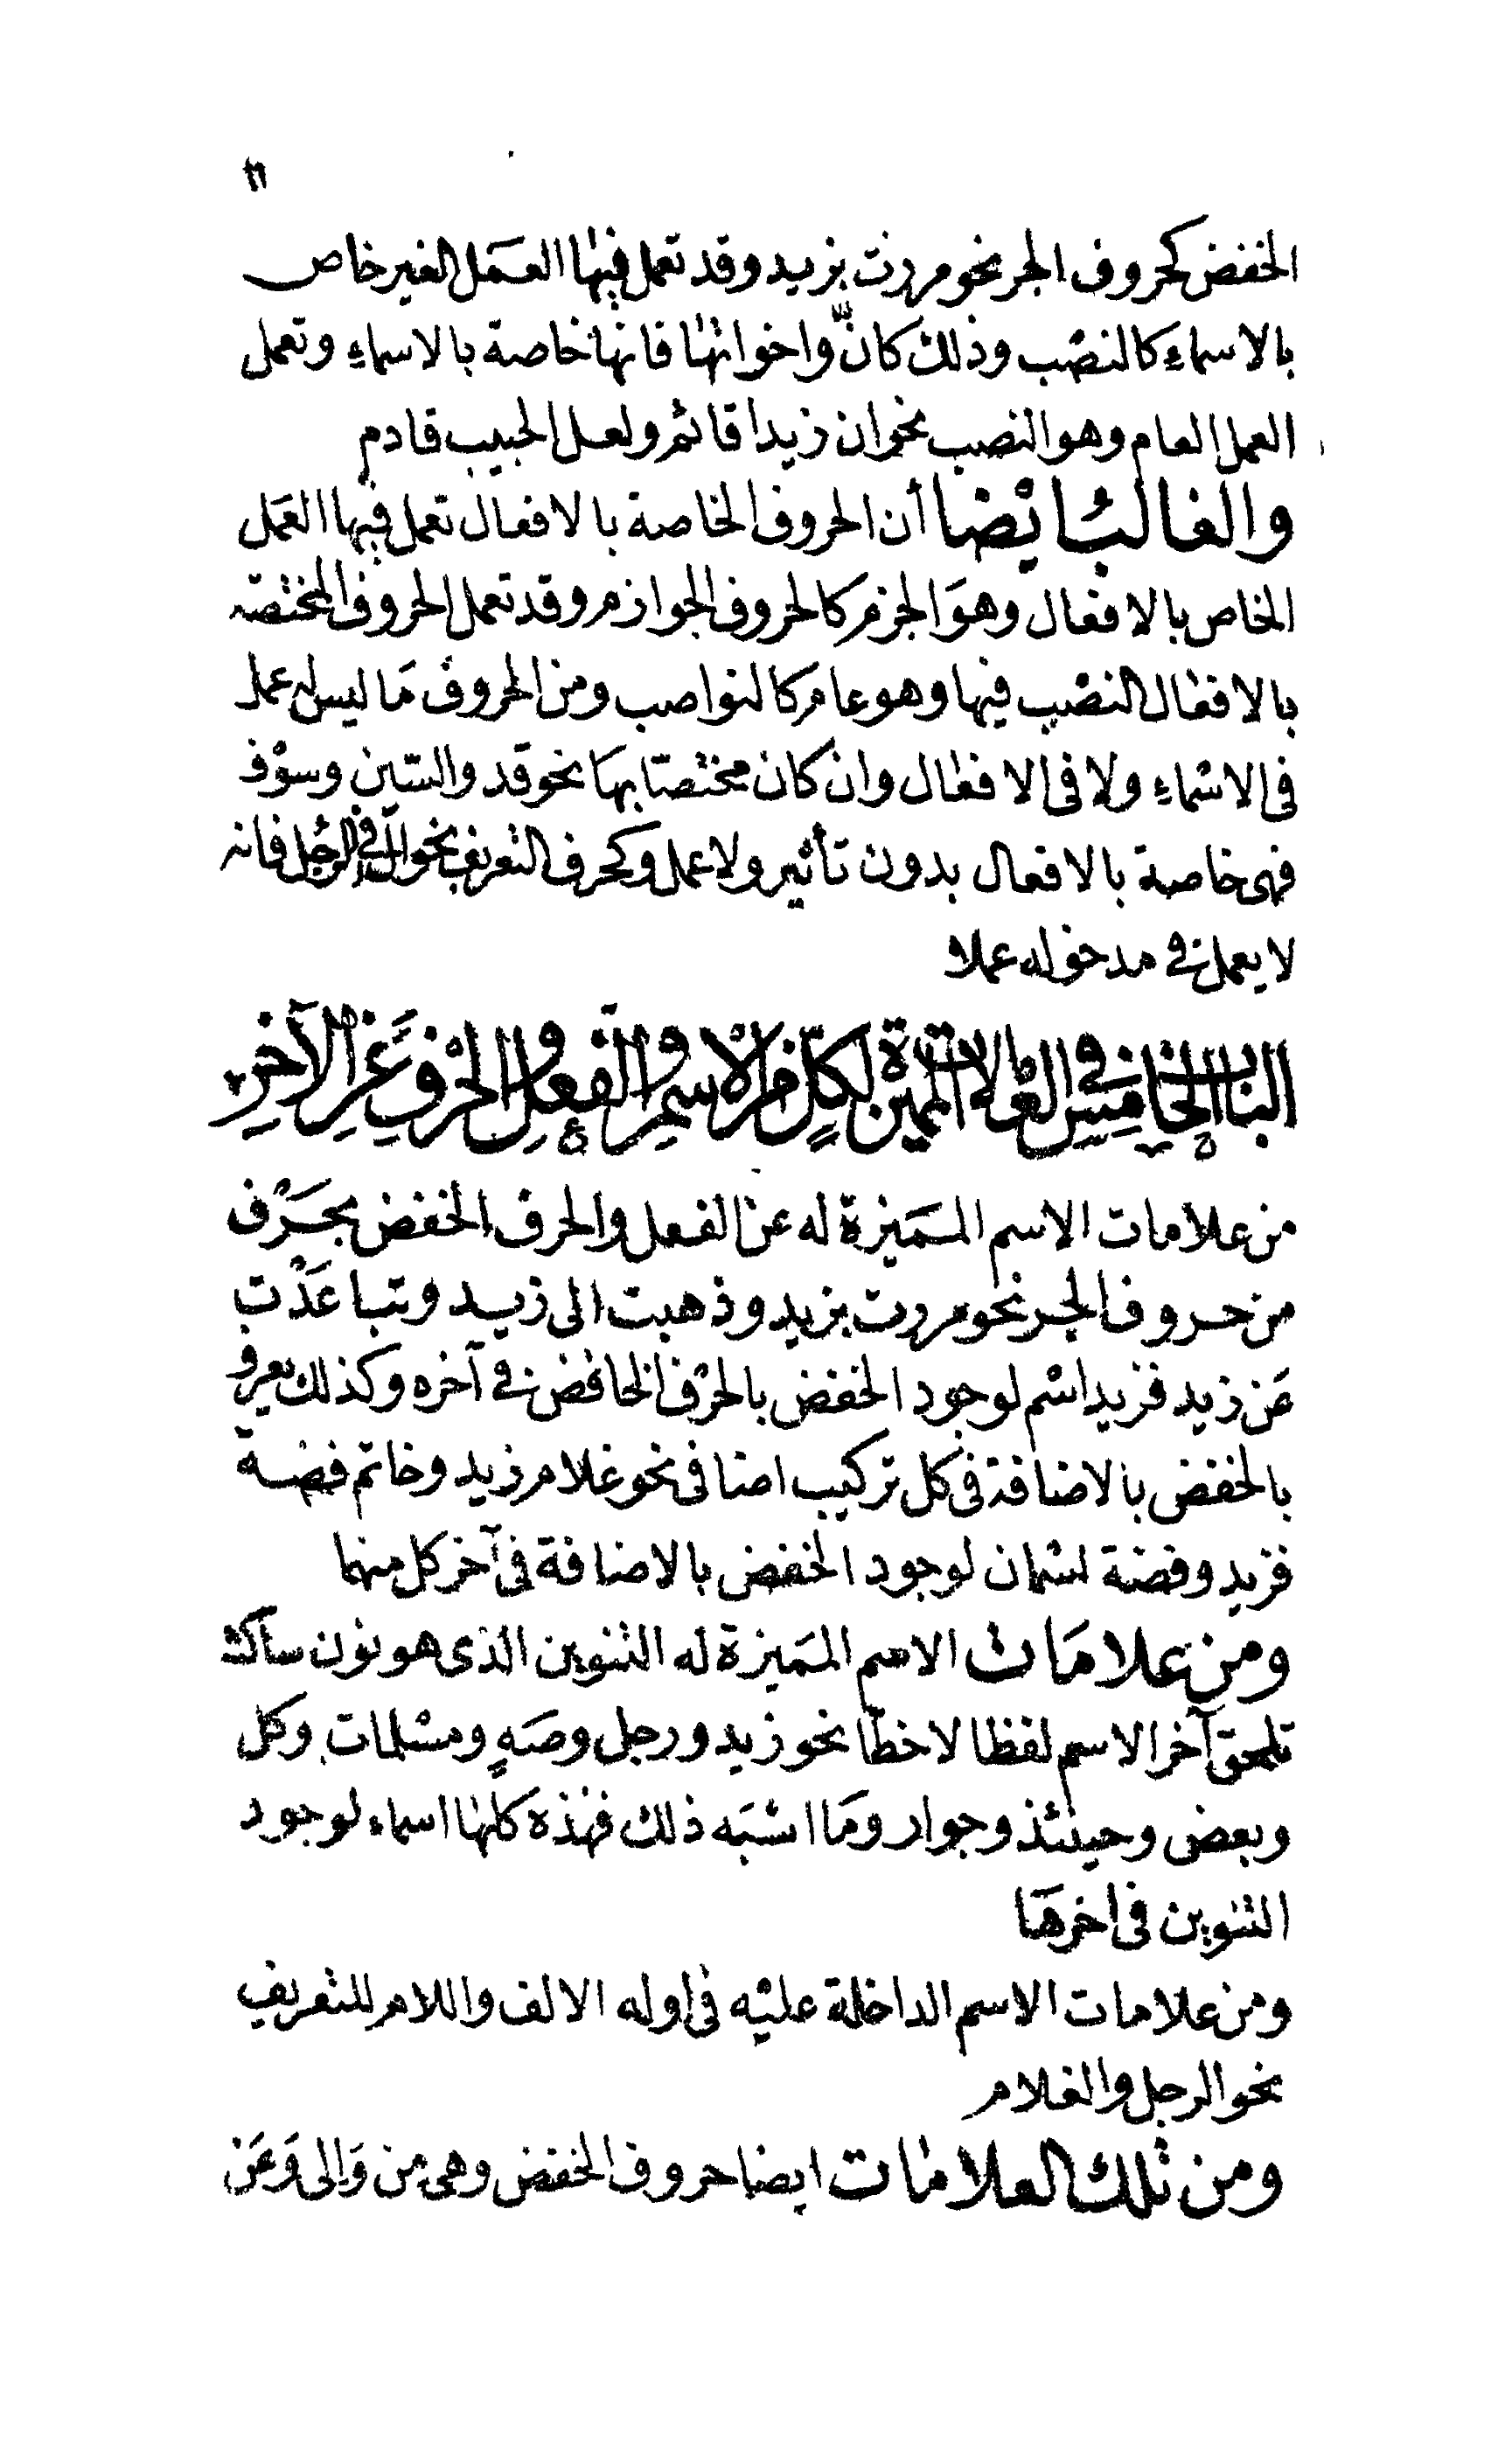 الخفض كحروف الجر نحو مررت بزيد وقد تعمل فيها العمل الغير خاص
بالاسماء كالنصب وذلك كانّ واخواتها فانها خاصة بالاسماء وتعمل
العمل العام وهو النصب نحوان زيدا قائم ولعل الحبيب قادم
والغالب ايضا أن الحروف الخاصة بالافعال تعمل فيها العمل
الخاص بالافعال وهو الجزم كالحروف الجوازم وقد تعمل الحروف المختصة
بالافعال النصب فيها وهو عام كالنواصب ومن الحروف ما ليس له عمل
فى الاسماء ولا فى الافعال وان كان مختصّا بها نحو قد والسّين وسوف
فهى خاصة بالافعال بدون تأثير ولا عمل وكحرف التعريف نحو ال فى الرجل فانه
لا يعمل فى مدخوله عملا
الباب الخامس فى العلامات المميزة لكل من الاسم والفعل والحرف عن الآخر
من علامات الاسم المميزة له عن الفعل والحرف الخفض بحرف
من حروف الجر نحو مررت بزيد وذهبت الى زيد وتباعدت
عن زيد فزيد اسم لوجود الخفض بالحرف الخافض فى آخره وكذلك يعرف
بالخفض بالاضافة فى كل تركيب اضافى نحو غلام زيد وخاتم فضة
فزيد وفضة اسمان لوجود الخفض بالاضافة فى آخر كل منهما
ومن علامات الاسم المميزة له التنوين الذى هو نون ساكنة
تلحق آخر الاسم لفظا لا خطّا نحو زيد ورجل وصهٍ ومسلمات وكل
وبعض وحينئذ وجوار وما اشبه ذلك فهذه كلها اسماء لوجود
التنوين فى اخرها
ومن علامات الاسم الداخلة عليه فى اوله الالف واللام للتعريف
نحو الرجل والغلام
ومن تلك العلامات ايضا حروف الخفض وهى من والى وعن